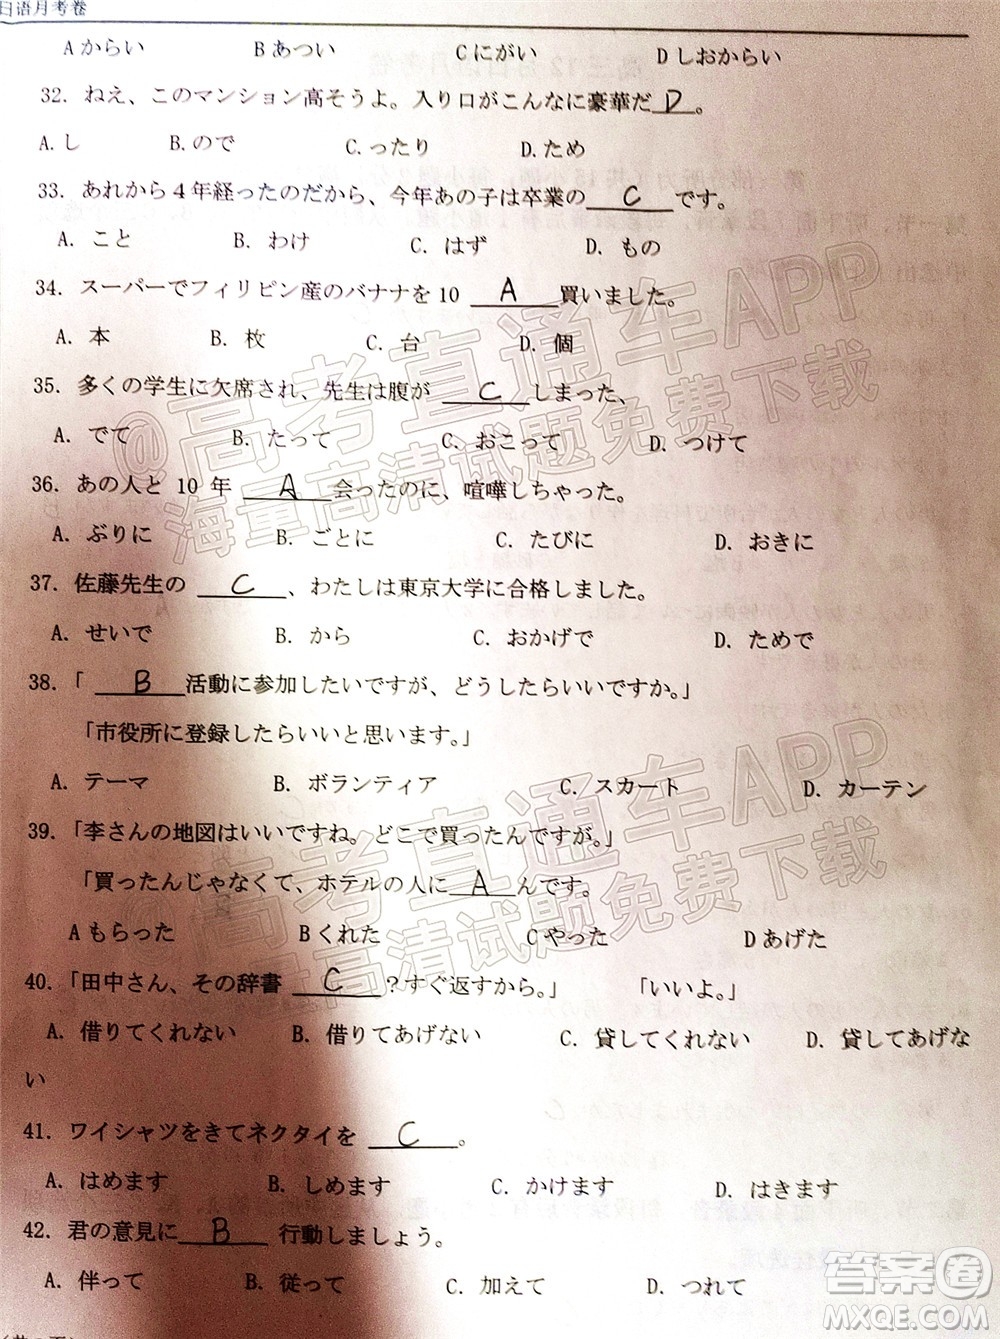 日语月考卷
Aからい　Bあつい　Cにがい　Dしおからい
32. ねえ、このマンション高そうよ。入り口がこんなに豪華だ D 。
A.し　B.ので　C.ったり　D.ため
33. あれから4年経ったのだから、今年あの子は卒業の C です。
A. こと　B. わけ　C. はず　D. もの
34. スーパーでフィリピン産のバナナを 10 A 買いました。
A. 本　B. 枚　C. 台　D. 個
35. 多くの学生に欠席され、先生は腹が C しまった、
A. でて　B. たって　C. おこって　D. つけて
36. あの人と 10 年 A 会ったのに、喧嘩しちゃった。
A. ぶりに　B. ごとに　C. たびに　D. おきに
37. 佐藤先生の C 、わたしは東京大学に合格しました。
A. せいで　B. から　C. おかげで　D. ためで
38. 「 B 活動に参加したいですが、どうしたらいいですか。」
「市役所に登録したらいいと思います。」
A. テーマ　B. ボランティア　C. スカート　D. カーテン
39. 「李さんの地図はいいですね。どこで買ったんですが。」
「買ったんじゃなくて、ホテルの人に A んです。」
Aもらった　Bくれた　Cやった　Dあげた
40. 「田中さん、その辞書 C ？すぐ返すから。」　「いいよ。」
A. 借りてくれない　B. 借りてあげない　C. 貸してくれない　D. 貸してあげな
い
41. ワイシャツをきてネクタイを C 。
A. はめます　B. しめます　C. かけます　D. はきます
42. 君の意見に B 行動しましょう。
A. 伴って　B. 従って　C. 加えて　D. つれて
@高考直通车APP
海量高清试题免费下载
@高考直通车APP
海量高清试题免费下载
答案圈
MXQE.COM